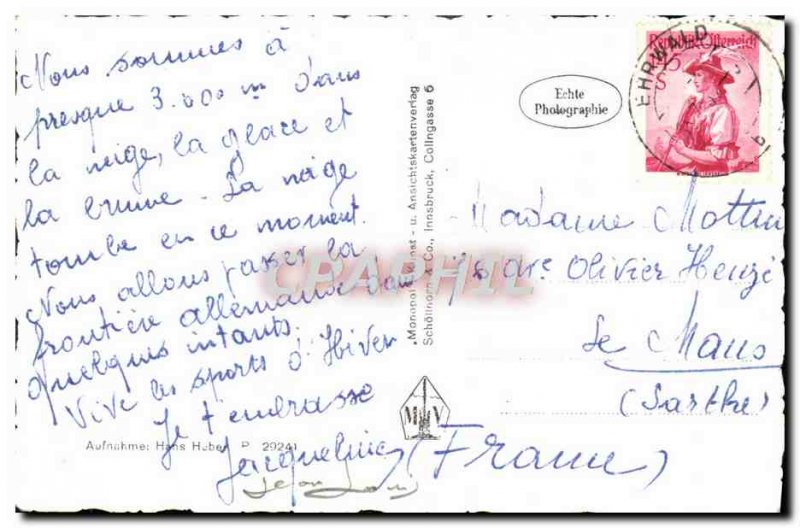 Nous sommes à
presque 3.000 m dans
la neige, la glace et
la brume. La neige
tombe en ce moment.
Nous allons passer la
frontière allemande dans
quelques instants.
Vive les sports d'Hiver
Je t'embrasse
Jacqueline
Jean Louis
Aufnahme: Hans Huber P. 29241
"Monopol" Kunst - u. Ansichtskartenverlag
Schöllhorn & Co., Innsbruck, Collingasse 6
M V
Echte
Photographie
Republik Österreich
EHRWALD
Madame Mottin
Olivier Heuzé
Le Mans
(Sarthe)
(France)
CPAPHIL